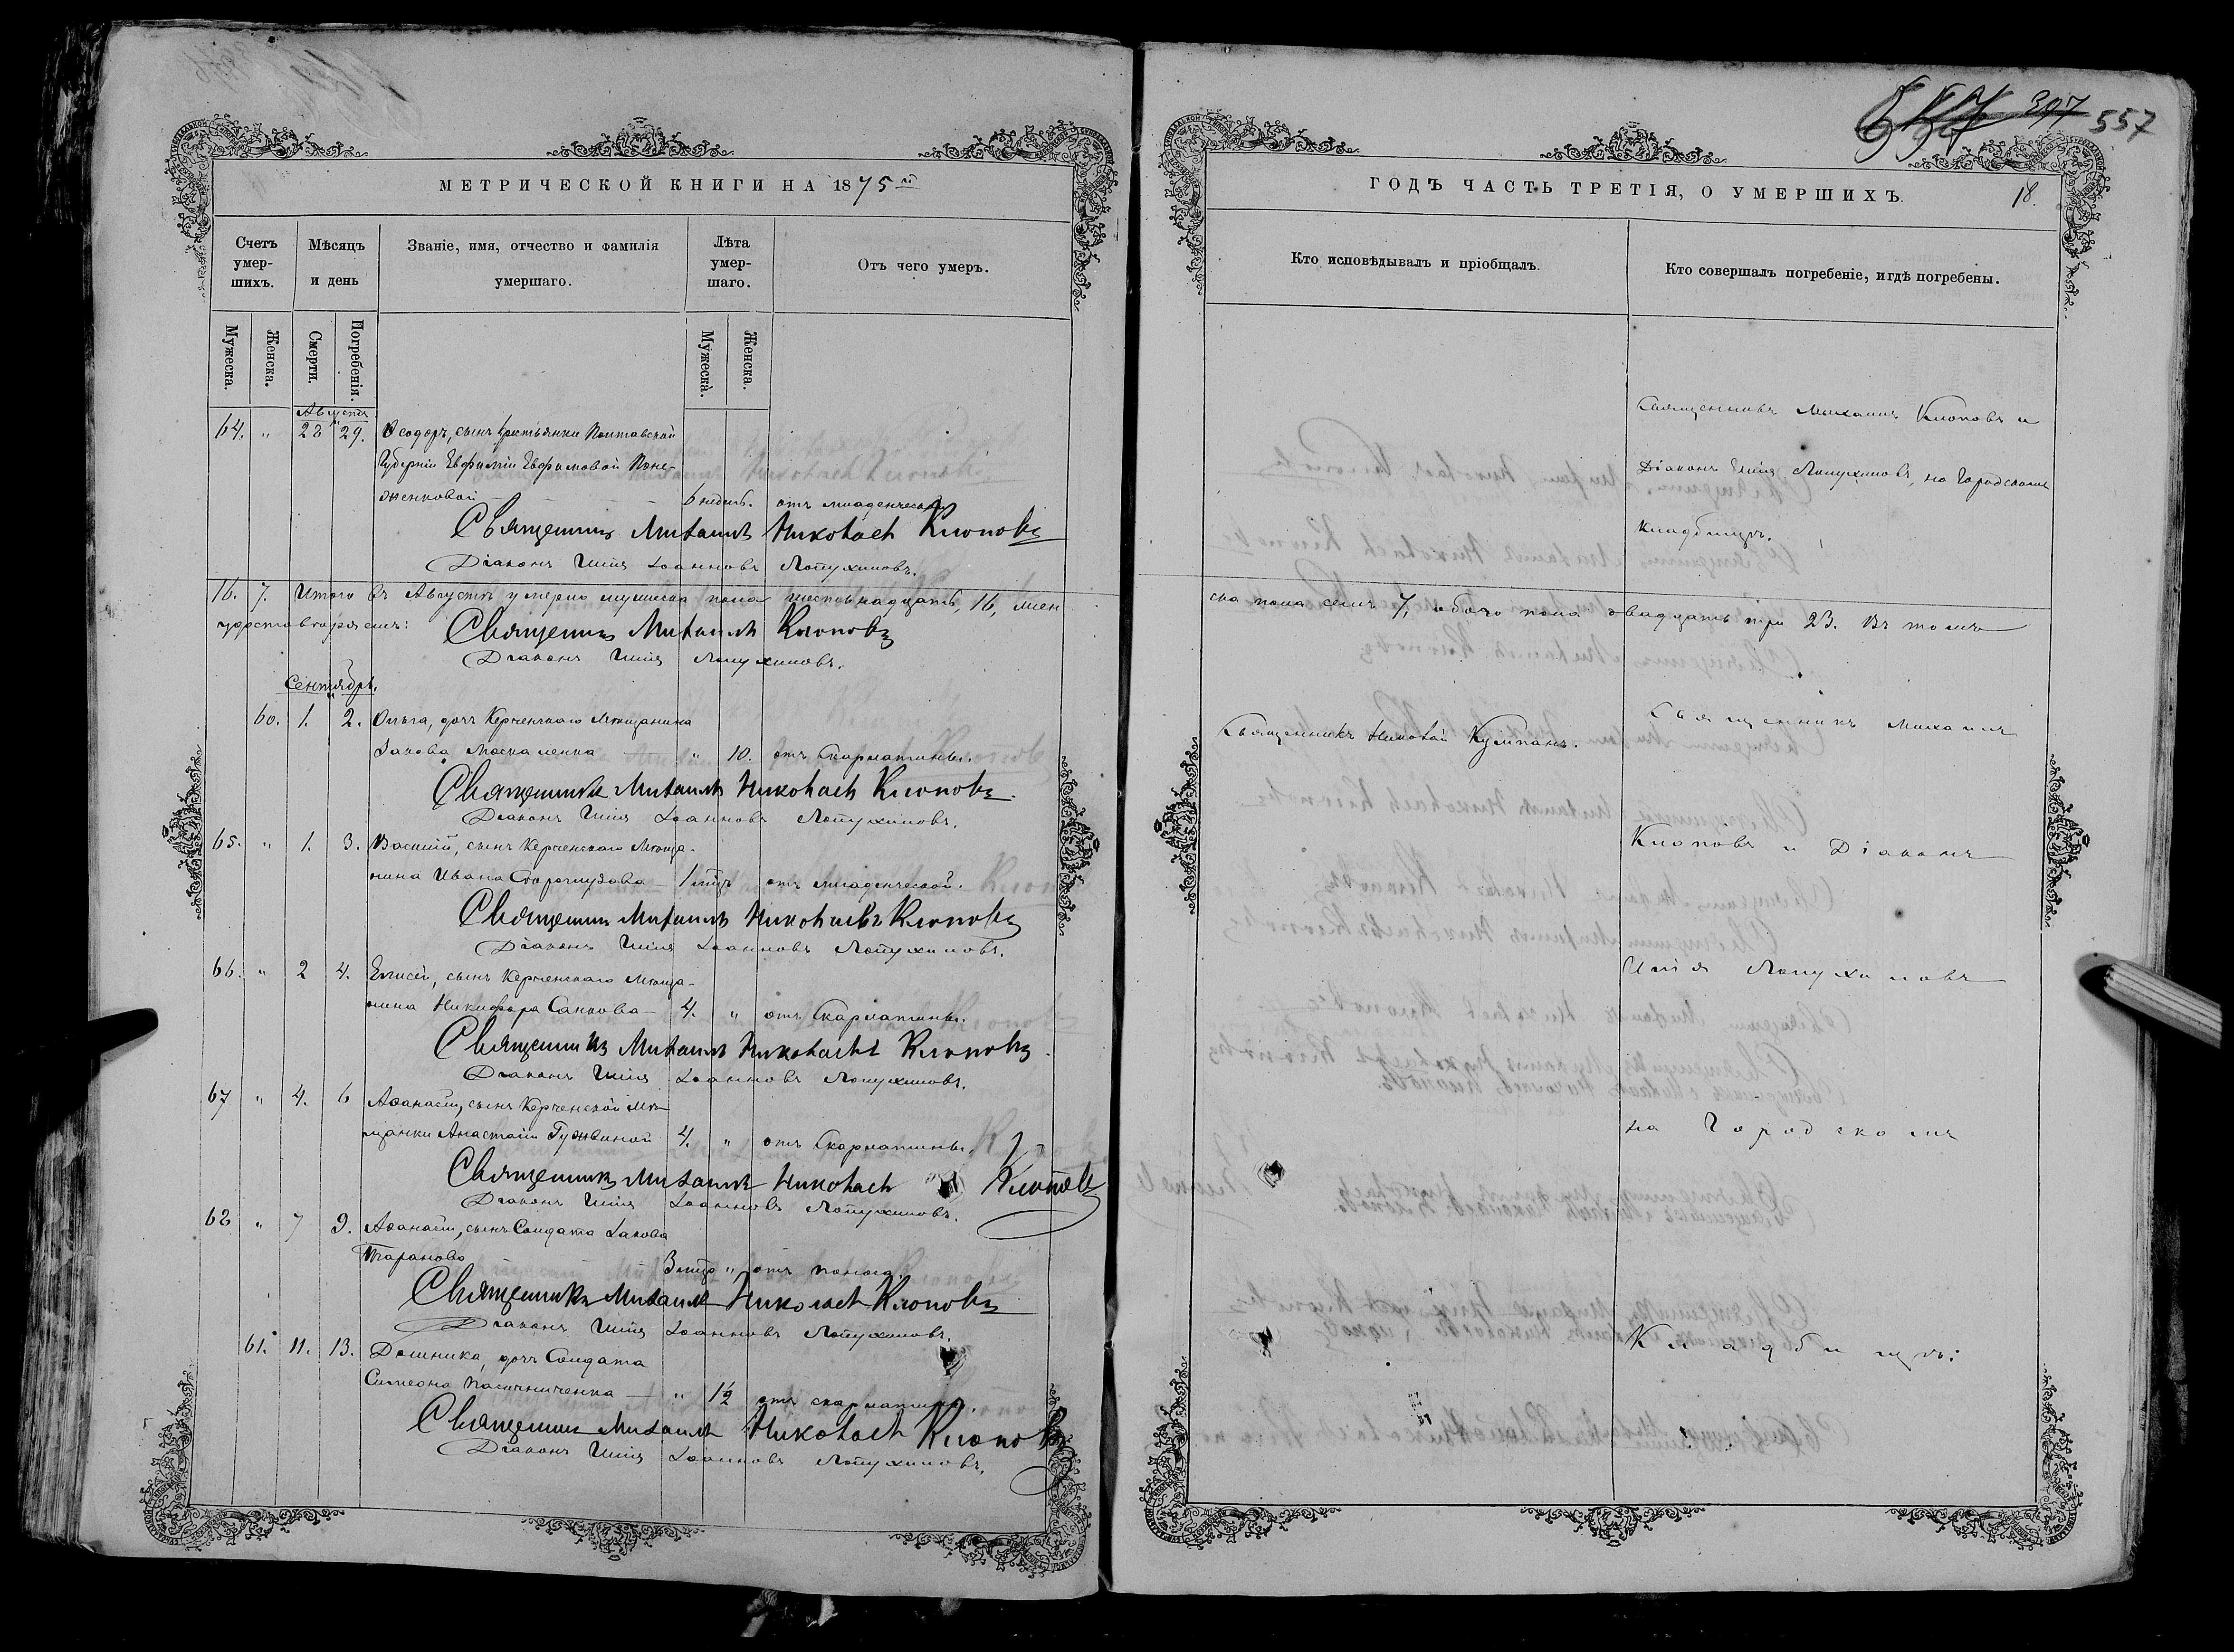 МЕТРИЧЕСКОЙ КНИГИ НА 1875 й
Счетъ умер-шихъ.
Мѣсяцъ и день
Званіе, имя, отчество и фамилія умершаго.
Лѣта умер-шаго.
Отъ чего умеръ.
Мужеска.
Женска.
Смерти.
Погребенія.
Мужеска.
Женска.
Августъ
64. " 28 29. Ѳеодоръ, сынъ крестьянки Полтавской
Губерніи Евфиміи Евфимовой
6 недѣль. отъ младенческой
Священникъ Михаилъ Николаевъ Клоповъ
Діаконъ Илія Іоанновъ Лопухиновъ.
16. 7. Итого въ Августѣ умерло мужеска пола шестьнадцать, 16, жен
Священникъ Михаилъ Клоповъ
Діаконъ Илія Лопухиновъ.
Сентябрь.
60. 1. 2. Ольга, дочь Керченскаго Мѣщанина
Іакова Москаленка " 10. отъ Скарлатины.
Священникъ Михаилъ Николаевъ Клоповъ
Діаконъ Илія Іоанновъ Лопухиновъ.
65. " 1. 3. Василій, сынъ Керченскаго Мѣща-
нина Ивана 1 мѣц отъ младенческой.
Священникъ Михаилъ Николаевъ Клоповъ
Діаконъ Илія Іоанновъ Лопухиновъ.
66. " 2 4. Елисей, сынъ Керченскаго Мѣща-
нина Никифора Санкова 4. " отъ Скарлатины.
Священникъ Михаилъ Николаевъ Клоповъ
Діаконъ Илія Іоанновъ Лопухиновъ.
67 " 4. 6 Аѳанасій, сынъ Керченской Мѣ-
щанки Анастасіи Гужвиной 4. " отъ Скарлатины.
Священникъ Михаилъ Николаевъ Клоповъ
Діаконъ Илія Іоанновъ Лопухиновъ.
68 " 7 9. Аѳанасій, сынъ Солдата Іакова
Таранова 3 мѣц " отъ поноса.
Священникъ Михаилъ Николаевъ Клоповъ
Діаконъ Илія Іоанновъ Лопухиновъ.
61. 11. 13. Домника, дочь Солдата
Симеона Пасичниченка " 1½ отъ скарлатины.
Священникъ Михаилъ Николаевъ Клоповъ
Діаконъ Илія Іоанновъ Лопухиновъ.
397 557
ГОДЪ ЧАСТЬ ТРЕТІЯ, О УМЕРШИХЪ.
18.
Кто исповѣдывалъ и пріобщалъ.
Кто совершалъ погребеніе, и гдѣ погребены.
Священникъ Михаилъ Клоповъ и
Діаконъ Илія Лопухиновъ, на Городскомъ
кладбищѣ.
ска пола семь 7, обоего пола двадцать три 23. Въ томъ
Священникъ Николай Кумпанъ.
Священникъ Михаилъ
Клоповъ и Діаконъ
Илія Лопухиновъ
на Городскомъ
Кладбищѣ: